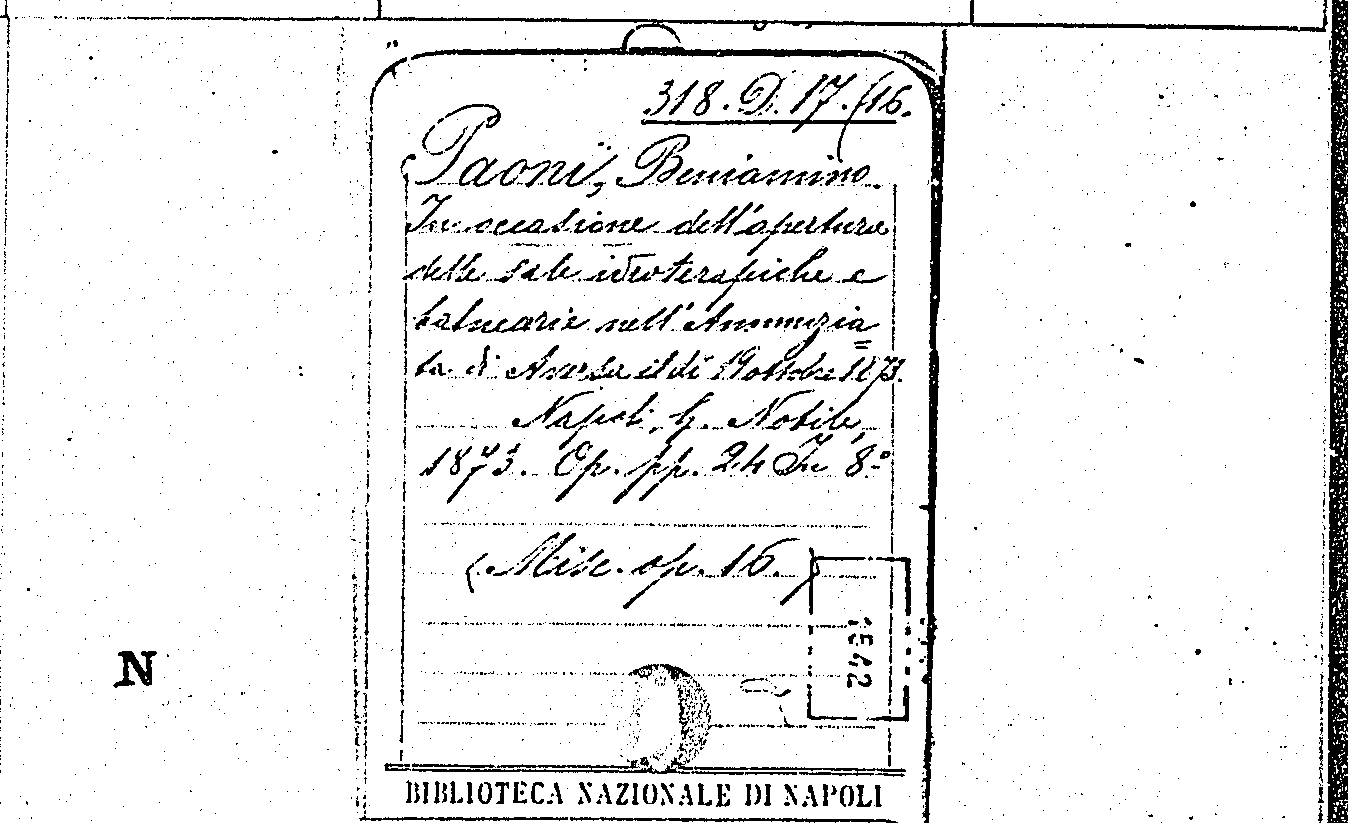 318. D. 17. (16.
Paoni, Beniamino.
In occasione dell'apertura
delle sale idroterapiche e
balnearie nell'Annunzia=
ta di Aversa il dì 19 ottobre 1873.
Napoli, G. Nobile,
1873. Op. pp. 24 In 8º
(Misc. op. 16.)
1542
N
BIBLIOTECA NAZIONALE DI NAPOLI